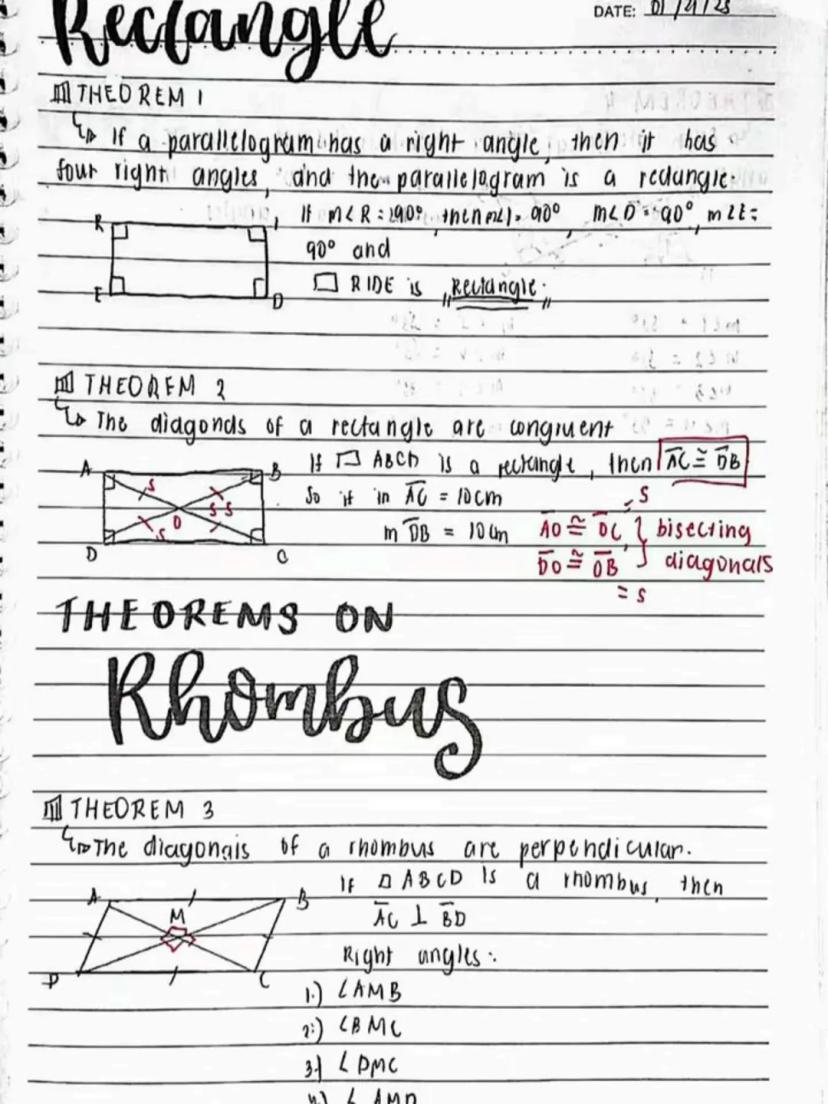 Rectangle
DATE: 01/21/23
THEOREM 1
↳ If a parallelogram has a right angle, then it has
four right angles, and the parallelogram is a rectangle.
R I
If m∠R = 90°, then m∠I = 90°, m∠D = 90°, m∠E =
90° and
▭ RIDE is "Rectangle."
E D
THEOREM 2
↳ The diagonals of a rectangle are congruent
A B
If ▭ ABCD is a rectangle, then AC ≅ DB
S S S S O
So if in AC = 10cm = 5
m DB = 10cm AO ≅ OC, bisecting
D C
DO ≅ OB diagonals
= 5
THEOREMS ON
Rhombus
THEOREM 3
↳ The diagonals of a rhombus are perpendicular.
A B
If ▱ ABCD is a rhombus, then
M
AC ⊥ BD
Right angles:
D C
1.) ∠AMB
2.) ∠BMC
3.) ∠DMC
4.) ∠AMD